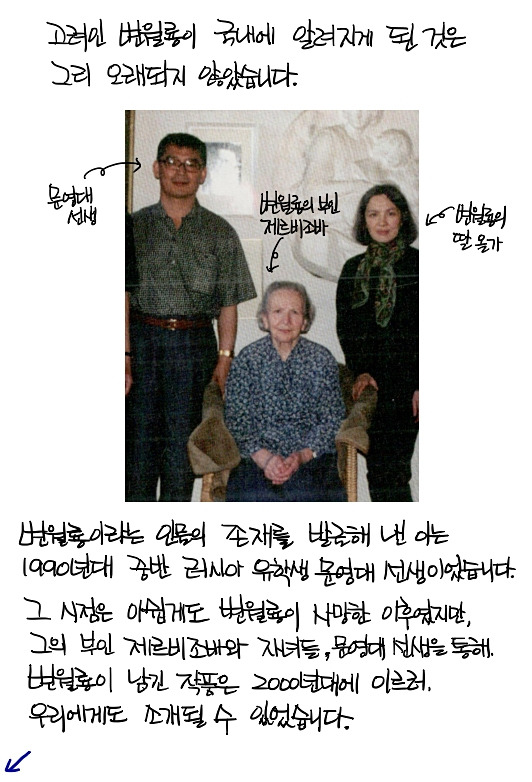 고려인 변월룡이 국내에 알려지게 된 것은
그리 오래되지 않았습니다.
문영대
선생
변월룡의 부인
제르비조바
변월룡의
딸 올가
변월룡이라는 인물의 존재를 발굴해 낸 이는
1990년대 중반 러시아 유학생 문영대 선생이었습니다.
그 시점은 아쉽게도 변월룡이 사망한 이후였지만,
그의 부인 제르비조바와 자녀들, 문영대 선생을 통해.
변월룡이 남긴 작품은 2000년대에 이르러.
우리에게도 소개될 수 있었습니다.